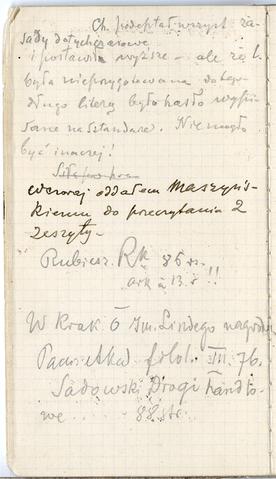 Ch. podeptał wszyst. za-
sady dotychczasowe
i postawił wyższe – ale
była nieprzygotowana
długo literą było hasło wypi-
sane na sztandarze. Nie mogło
być inaczej!
wczoraj oddałem Maszyńs-
kiemu do przeczytania 2
zeszyty.
Rubież. Rk 86 w.
ark à 13. !!
W Krak 6 Im. Lindego nagroda
Pamiętka filol. III. 76.
Sadowski Drogi handlo-
we 88 str.